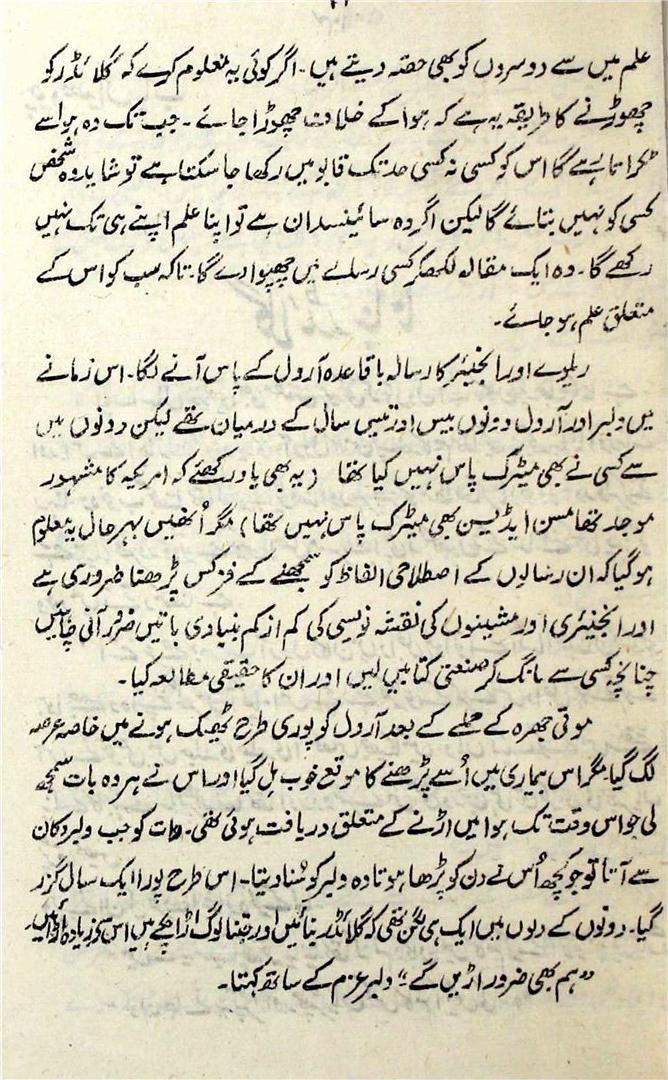 علم میں سے دوسروں کو بھی حصّہ دیتے ہیں۔ اگر کوئی یہ معلوم کرے کہ گلائڈر کو
چھوڑنے کا طریقہ یہ ہے کہ ہوا کے خلاف چھوڑا جائے۔ جب تک وہ ہوا سے
ٹکراتا رہے گا اس کو کسی نہ کسی حد تک قابو میں رکھا جا سکتا ہے تو شاید وہ شخص
کسی کو نہیں بتائے گا لیکن اگر وہ سائینسدان ہے تو اپنا علم اپنے ہی تک نہیں
رکھے گا۔ وہ ایک مقالہ لکھ کر کسی رسالے میں چھپوا دے گا۔ تاکہ سب کو اس کے
متعلق علم ہو جائے۔
ریلوے اور انجنیئر کا رسالہ باقاعدہ آرول کے پاس آنے لگا۔ اس زمانے
میں ولبر اور آرول دونوں بیس اور تیس سال کے درمیان تھے لیکن دونوں میں
سے کسی نے بھی میٹرک پاس نہیں کیا تھا (یہ بھی یاد رکھئے کہ امریکہ کا مشہور
موجد تھامسن ایڈیسن بھی میٹرک پاس نہیں تھا) مگر اُنھیں بہرحال یہ معلوم
ہو گیا کہ ان رسالوں کے اصطلاحی الفاظ کو سمجھنے کے فزکس پڑھنا ضروری ہے
اور انجنیئری اور مشینوں کی نقشہ نویسی کی کم از کم بنیادی باتیں ضرور آنی چاہئیں
چنانچہ کسی سے مانگ کر صنعتی کتابیں لیں اور ان کا حقیقی مطالعہ کیا۔
موتی جھرہ کے حملے کے بعد آرول کو پوری طرح ٹھیک ہونے میں خاصہ عرصہ
لگ گیا مگر اس بیماری میں اُسے پڑھنے کا موقع خوب مل گیا اور اس نے ہر وہ بات سمجھ
لی جو اس وقت تک ہوا میں اڑنے کے متعلق دریافت ہوئی تھی۔ رات کو جب ولبر دکان
سے آتا تو جو کچھ اُس نے دن کو پڑھا ہوتا وہ ولبر کو سُنا دیتا۔ اس طرح پورا ایک سال گزر
گیا۔ دونوں کے دلوں میں ایک ہی لگن تھی کہ گلائڈر بنائیں اور جتنا لوگ اڑا چکے ہیں اس سے زیادہ اڑائیں۔
"ہم بھی ضرور اڑیں گے" ولبر عزم کے ساتھ کہتا۔